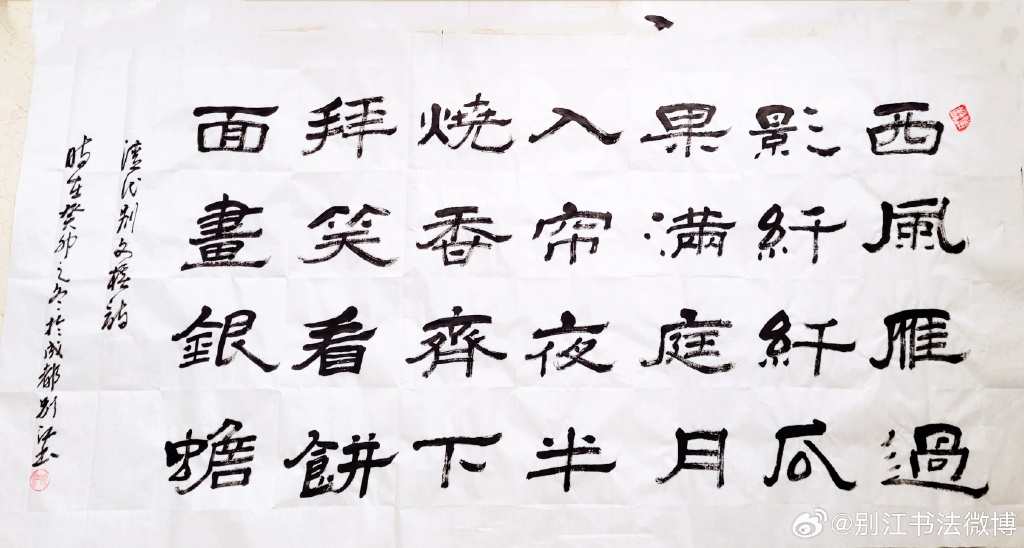 西風雁過
影纤纤瓜
果满庭月
入帘夜半
燒香齊下
拜笑看餅
面畫銀蟾
清代别文榳詩
時在癸卯之冬於成都别江书
@别江书法微博